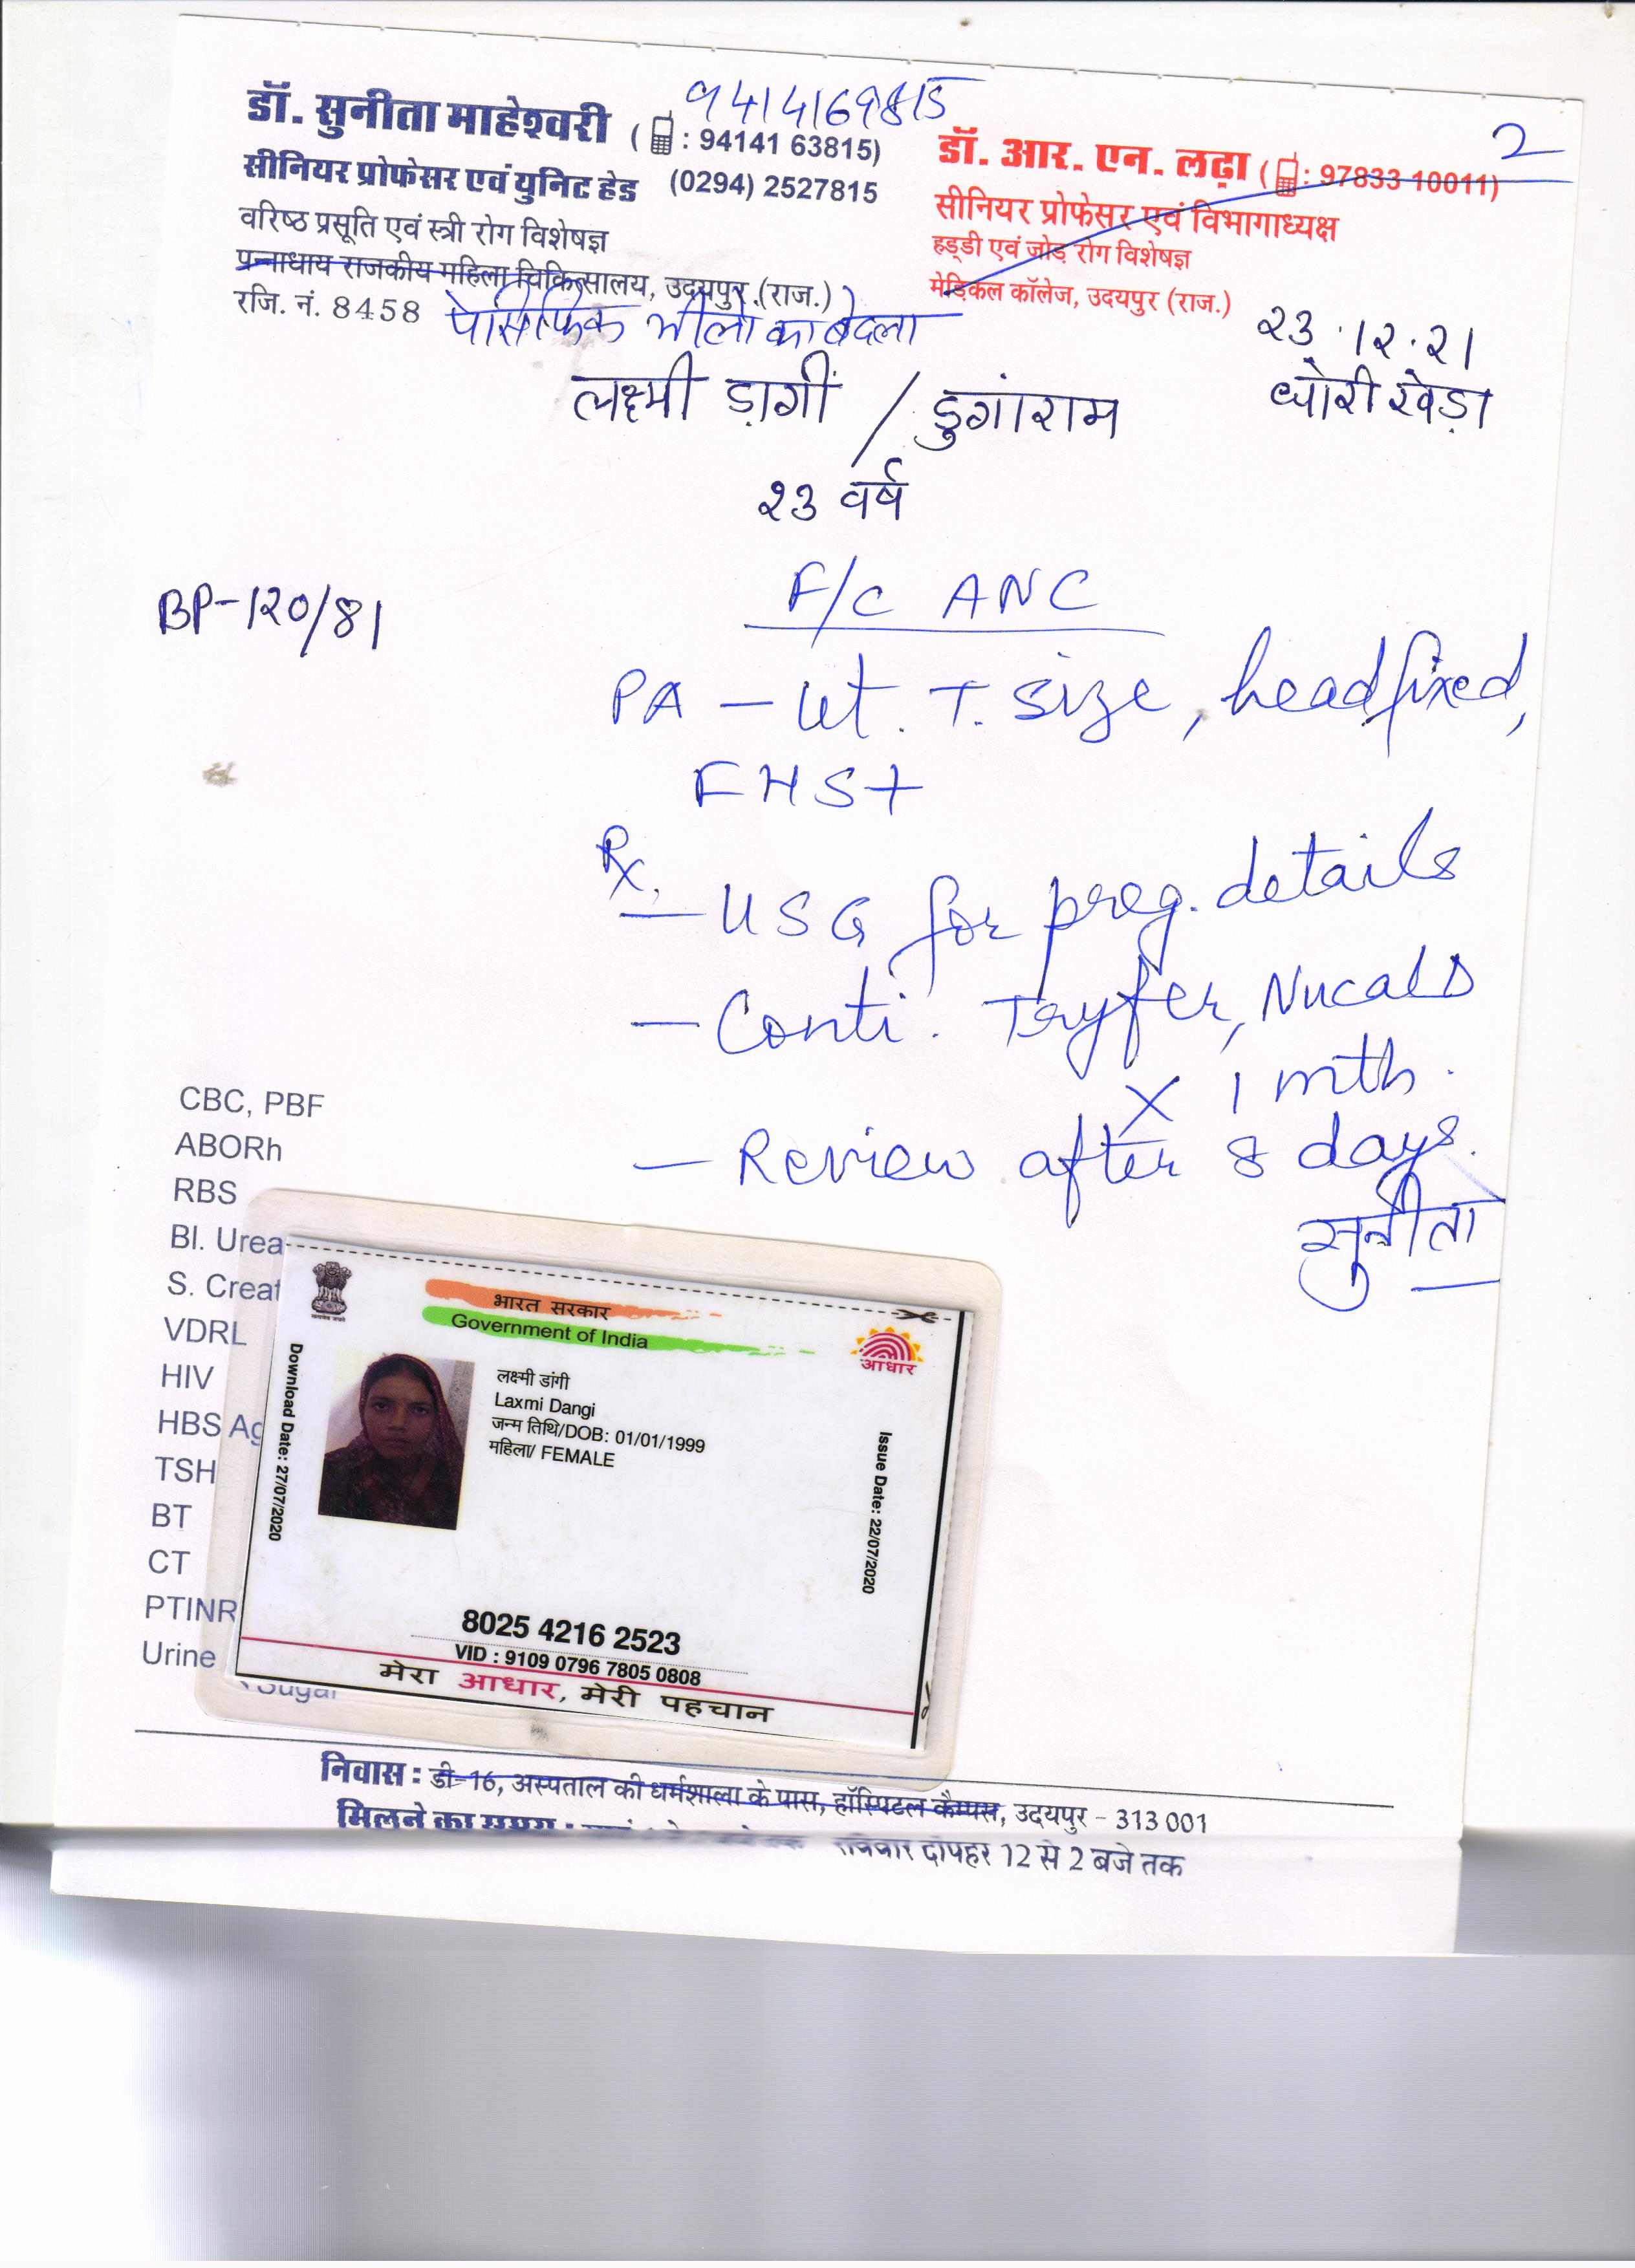 9414169815
डॉ. सुनीता माहेश्वरी ( : 94141 63815)
सीनियर प्रोफेसर एवं युनिट हेड (0294) 2527815
वरिष्ठ प्रसूति एवं स्त्री रोग विशेषज्ञ
पन्नाधाय राजकीय महिला चिकित्सालय, उदयपुर (राज.)
रजि. नं. 8458
पेसिफिक भीलो का बेदला
2
डॉ. आर. एन. लढ़ा ( : 97833 10011)
सीनियर प्रोफेसर एवं विभागाध्यक्ष
हड्डी एवं जोड़ रोग विशेषज्ञ
मेडिकल कॉलेज, उदयपुर (राज.)
२३.१२.२१
लक्ष्मी डा़गीं / डुगांराम
खेड़ा
२३ वर्ष
BP-120/81
F/C ANC
PA - Ut. T. size, head fixed,
FHS+
Rx.
- USG for preg. details
- Conti. Tryfer, Nucal D
x 1 mth.
- Review after 8 days.
सुनीता
CBC, PBF
ABORh
RBS
Bl. Urea
S. Creat
VDRL
HIV
HBS Ag
TSH
BT
CT
PTINR
Urine
Sugar
भारत सरकार
Government of India
आधार
Download Date: 27/07/2020
लक्ष्मी डांगी
Laxmi Dangi
जन्म तिथि/DOB: 01/01/1999
महिला/ FEMALE
Issue Date: 22/07/2020
8025 4216 2523
VID : 9109 0796 7805 0808
मेरा आधार, मेरी पहचान
निवास : डी-16, अस्पताल की धर्मशाला के पास, हॉस्पिटल कैम्पस, उदयपुर - 313 001
मिलने का समय :
रविवार दोपहर 12 से 2 बजे तक